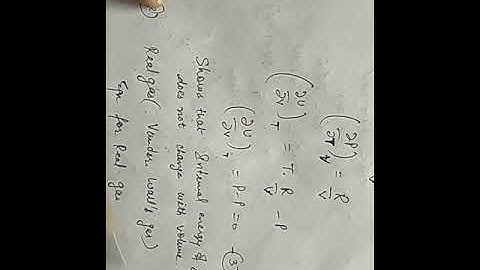 (∂P/∂T)_V = R/V
(∂U/∂V)_T = T. R/V - P
(∂U/∂V)_T = P-P = 0 -(3
Shows that Internal energy of
does not change with volume.
Real gas (Vander Wall's gas)
for Real gas